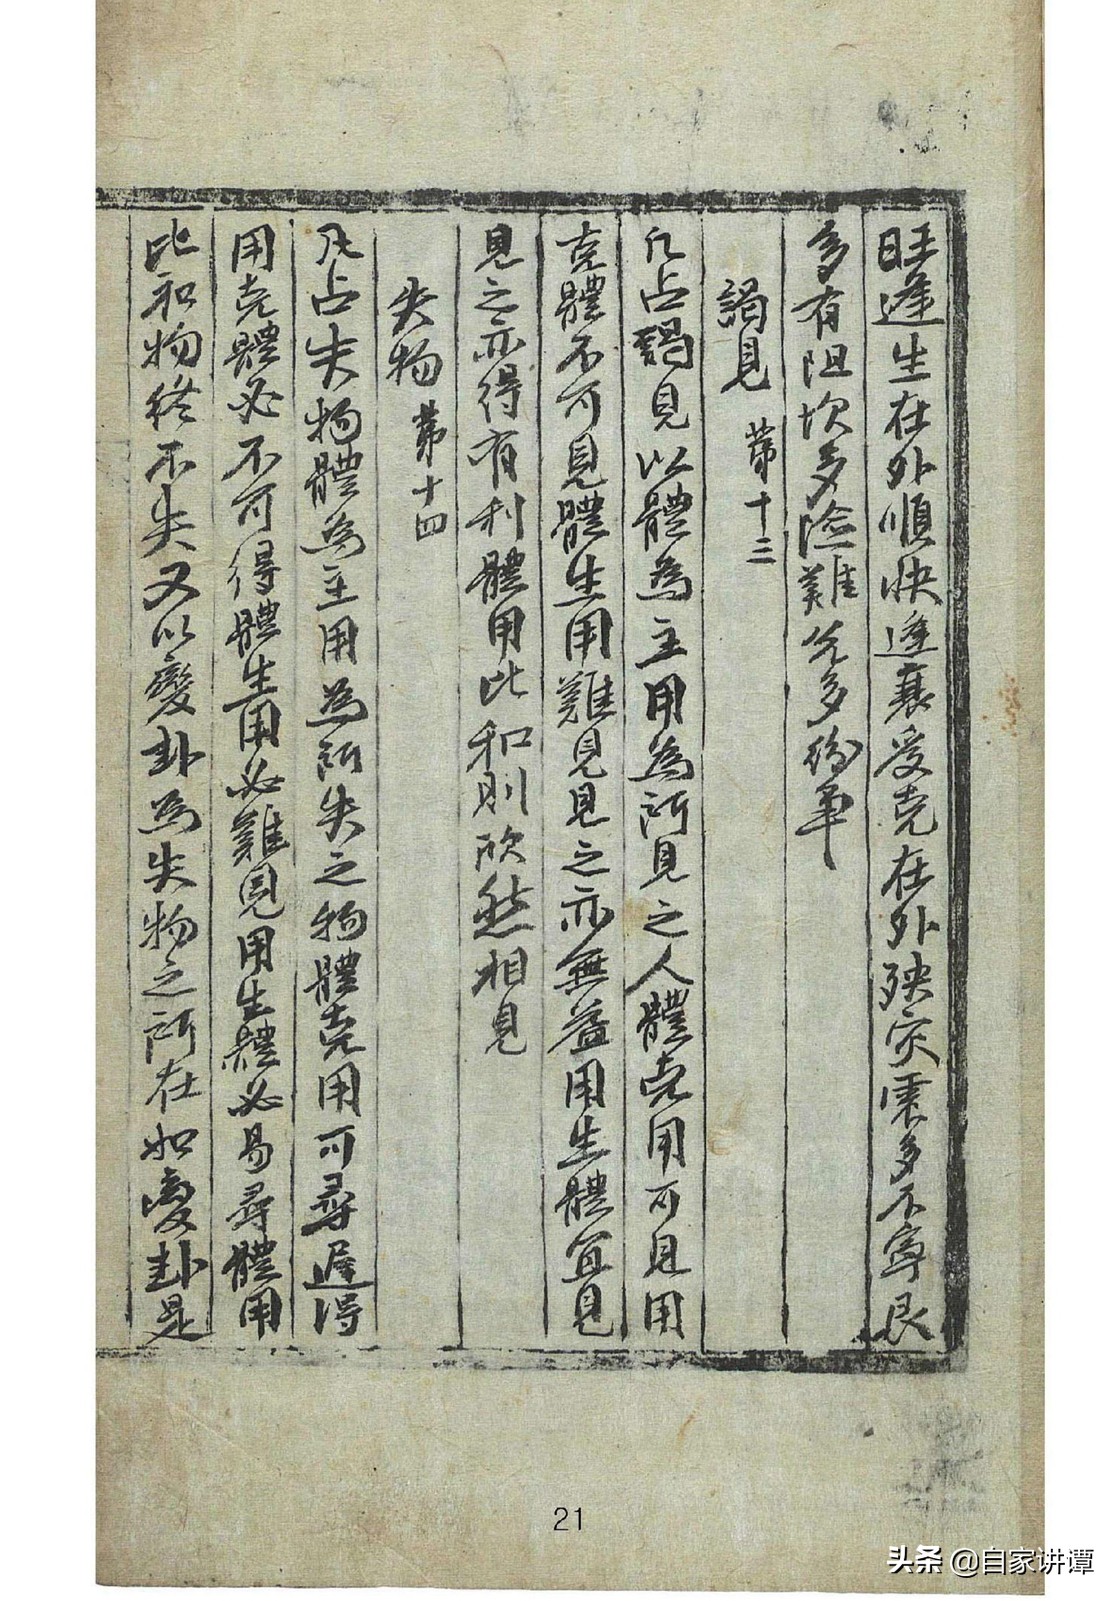 旺逢生在外順快逢衰受克在外殃灾事多不寧艮
多有阻坎多險難兌多紛爭
謁見 第十三
凡占謁見以體為主用為所見之人體克用可見用
克體不可見體生用難見見之亦無益用生體宜見
見之亦得有利體用比和則欣然相見
失物 第十四
凡占失物體為主用為所失之物體克用可尋遲得
用克體必不可得體生用必難見用生體必易尋體用
比和物終不失又以變卦為失物之所在如變卦是
21
头条 @自家讲谭